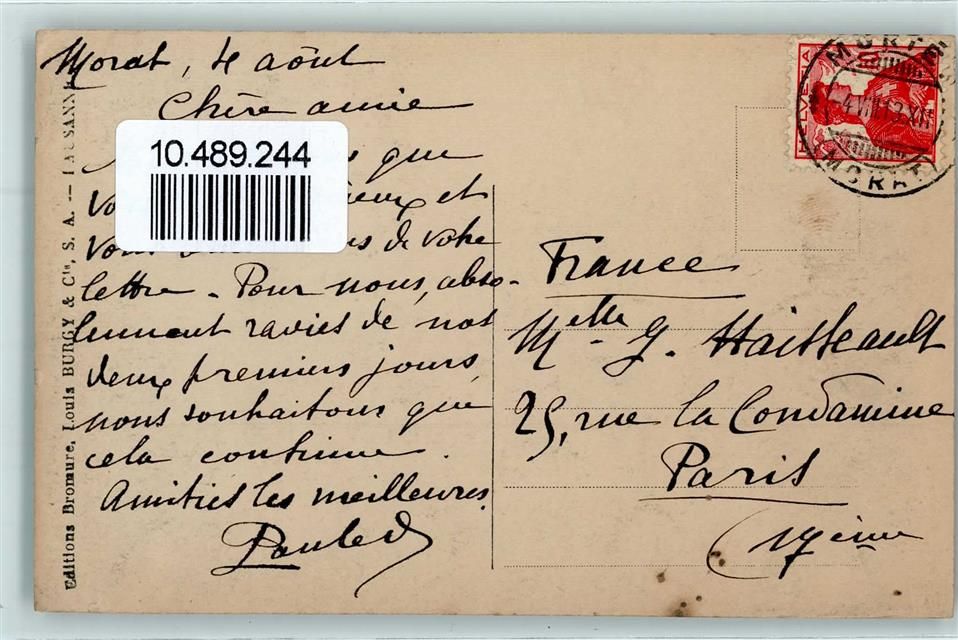 Morat, 4 août
Chère amie
que
et
de votre
lettre - Pour nous, abso-
lument ravies de nos
deux premiers jours,
nous souhaitons que
cela continue.
Amitiés les meilleures
10.489.244
Editions Bromure, Louis BURGY & Cie, S. A. — LAUSANNE
HELVETIA
10
MORAT
MORAT
France
Melle G. Haisseault
25, rue la Condamine
Paris
(17ème